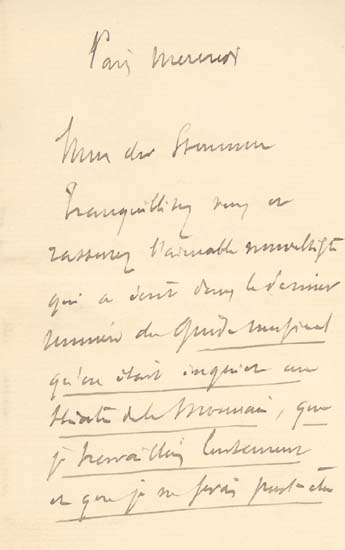 Paris Mercredi
Mon cher Stoumon
Tranquillisez vous et
rassurez l'aimable nouvelliste
qui a écrit dans le dernier
numéro du Guide musical
qu'on était inquiet au
théâtre de la Monnaie, que
je travaillais lentement
et que je ne serais pas prêt